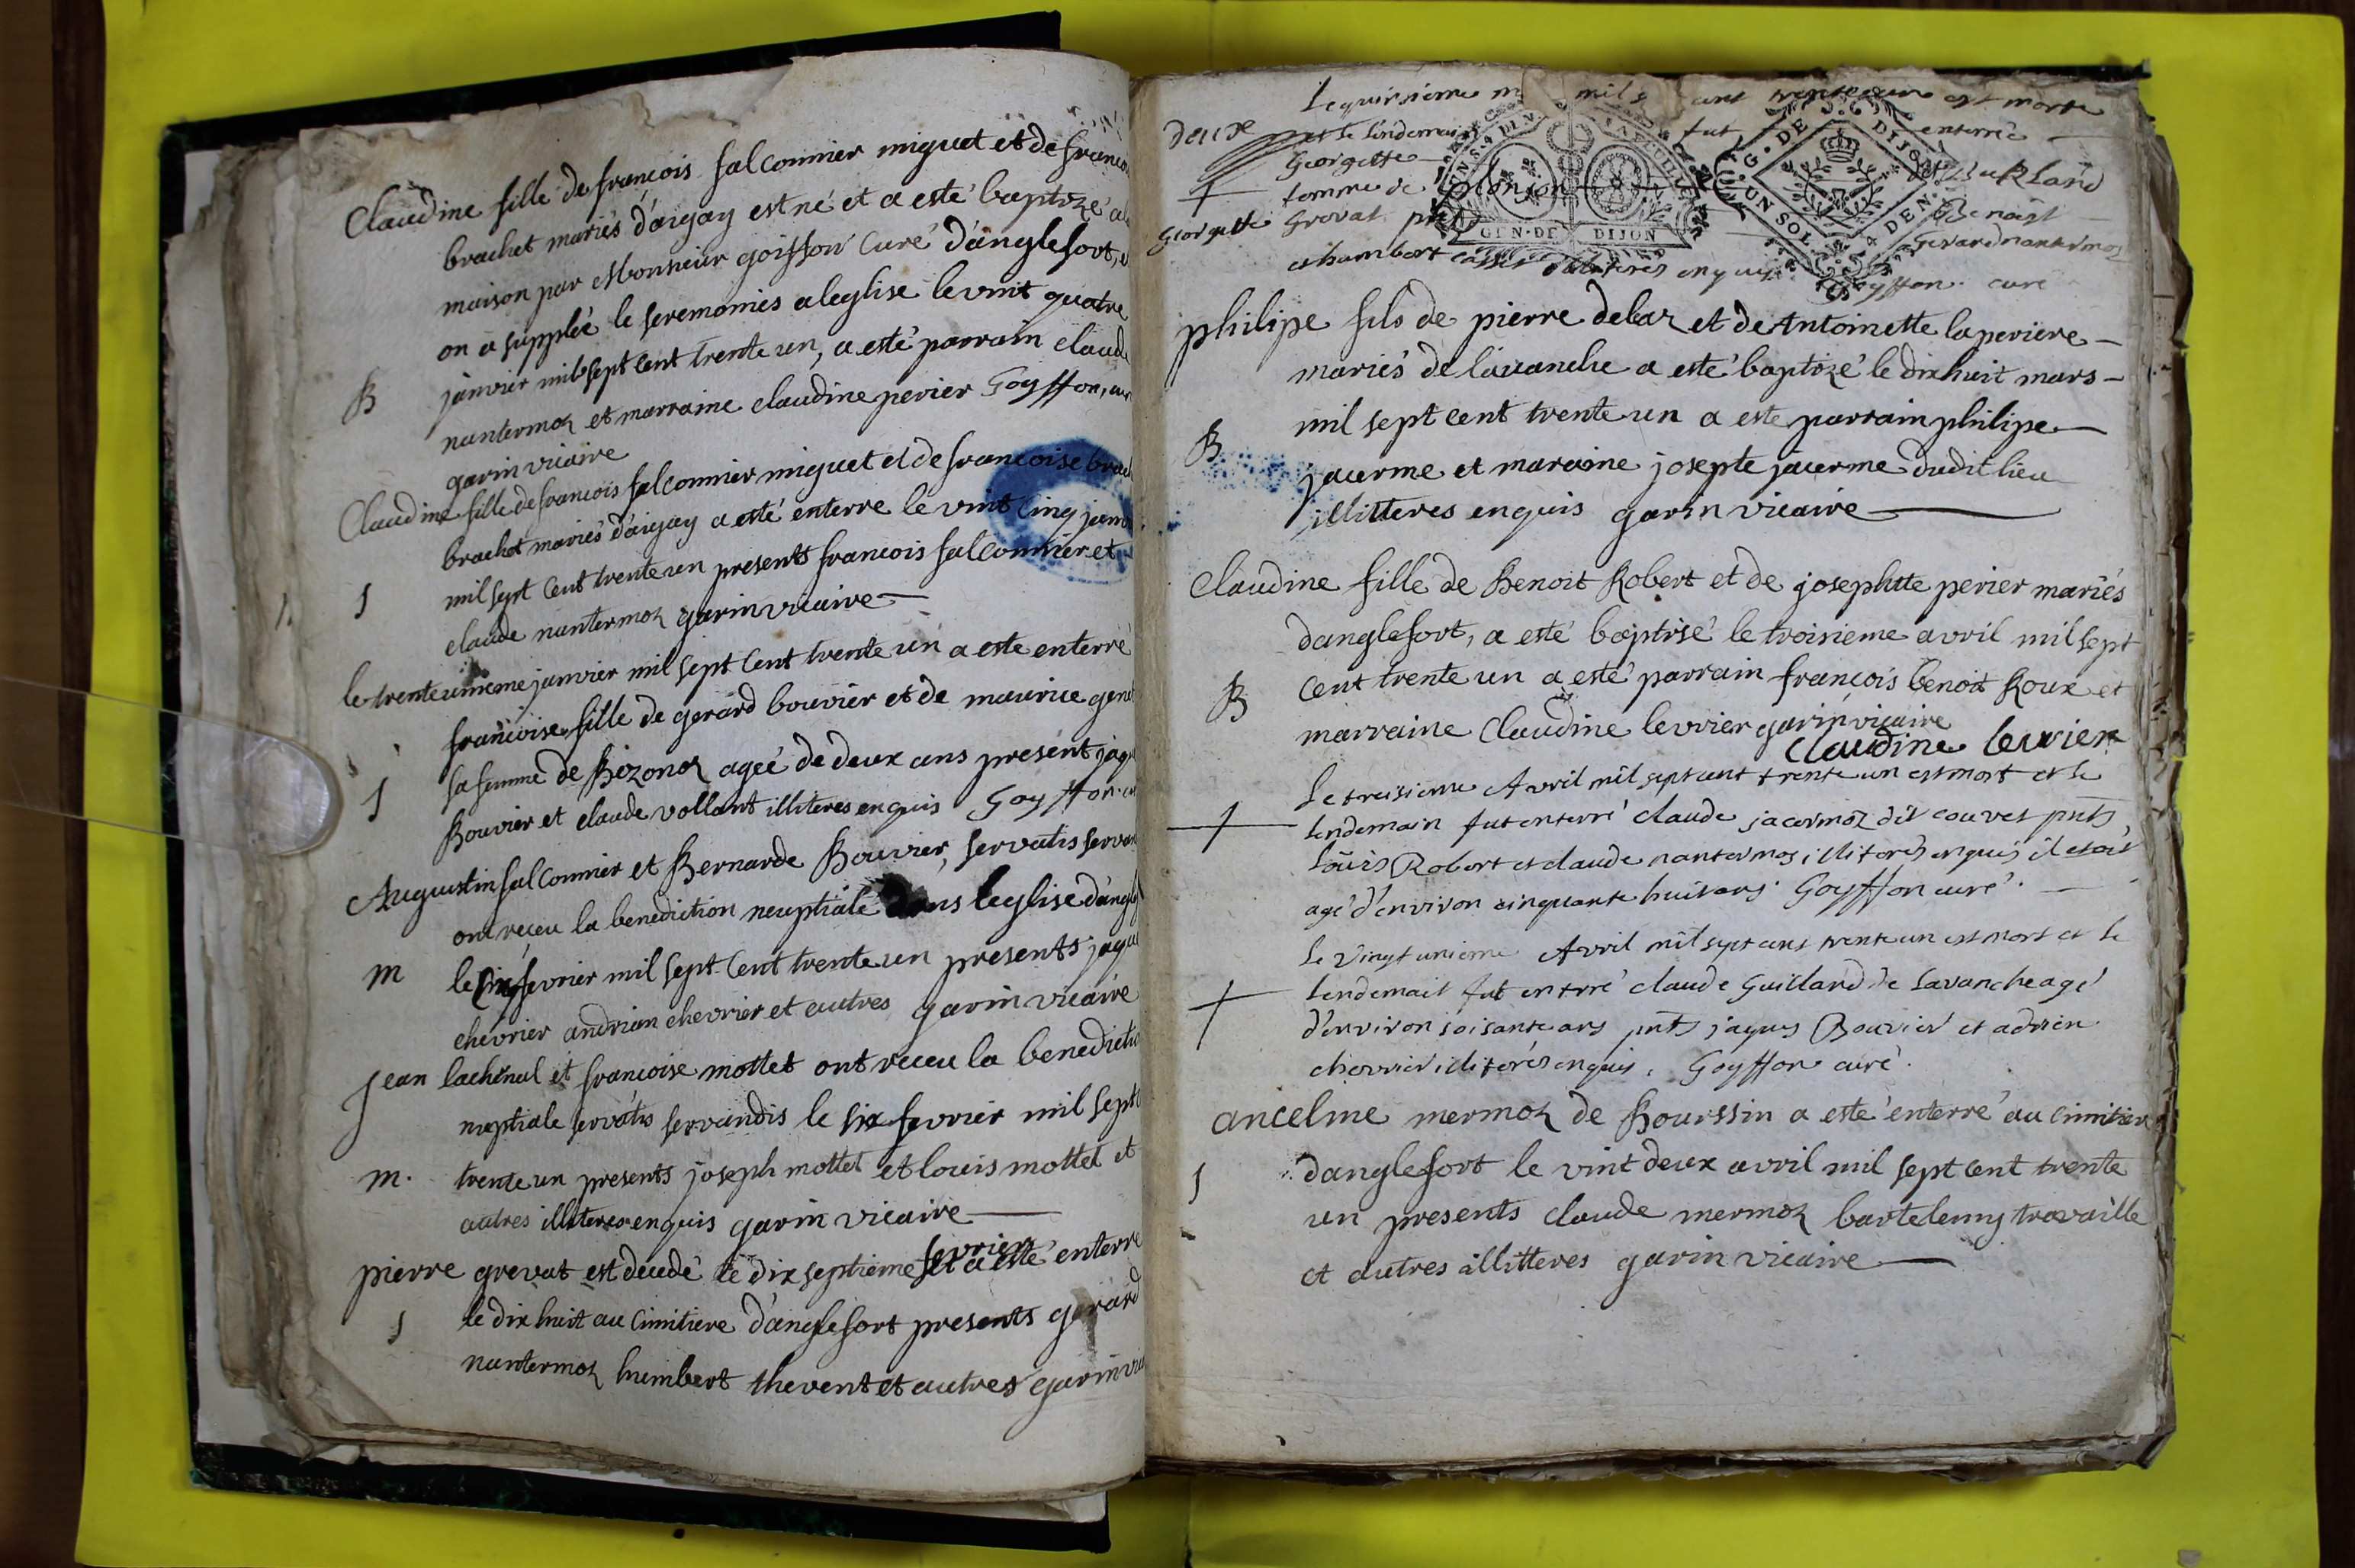 Claudine fille de francois falconnier miguet et de francoi
brachet mariés d'aigay est né et a esté baptizé a la
maison par Monsieur goiffon curé d'anglefort, et
on a supplée le seremonies a leglise le vint quatre
B
janvier mil sept cent trente un, a esté parrain claude
nantermoz et marraine claudine perier Goyffon, cur
garin vicaire
Claudine fille de francois falconnier miguet et de francoise brac
brachet mariés d'aigay a esté enterre le vint cinq janv
S
mil sept cent trente un presents francois falconnier et
claude nantermoz garin vicaire
le trente unieme janvier mil sept cent trente un a este enterré
francoise fille de gerard bouvier et de maurice genet
S
sa femme de Bizonoz agée de deux ans present jaque
Bouvier et claude vollant illiteres enquis Goyffon cu
Augustin falconnier et Bernarde Bouvier, servatis servan
ont receu la benediction neuptiale dans leglise d'anglef
m
le fevrier mil sept cent trente un presents jaque
chevrier andrian chevrier et autres garin vicaire
Jean lachenal et francoise mottet ont receu la benedictio
neptiale servatis servandis le six fevrier mil sept c
m.
trente un presents joseph mottet et louis mottet et
autres illiteres enquis garin vicaire
pierre grevat est decedé le dix septieme fevrier et a esté enterre
S
le dix huit au cimitiere d'anglefort presents gerard
nantermoz humbert thevent et autres garin vic
Le quinsieme m mil s cent trente un est morte
deuxe et le lendemain fut enterrée
Georgette
femme de
GEN. DE DIJON
G. DE DIJON
UN SOL 4 DEN.
georgette Grovat pnts Benoist
Gerard nantermoz
et humbert enquis Goyffon curé
philipe fils de pierre delaz et de Antoinette laperiere
mariés de lavanche a esté baptizé le dixhuit mars
mil sept cent trente un a este parrain philipe
B
jacerme et maraine josepte jacerme dudit lieu
illitteres enquis garin vicaire
Claudine fille de Benoit Robert et de josephtte perier mariés
danglefort, a esté baptisé le troisieme avril mil sept
B
cent trente un a esté parrain françois benoit Roux et
marraine Claudine levrier garin vicaire
Claudine levrier
Le treisieme Avril mil sept cent trente un est mort et le
lendemain fut enterré claude jacermoz dit couvet pnts
Louis Robert et claude nantermoz illiterés enquis il etoit
agé d'environ cinquante huit ans. Goyffon curé.
Le vingt unieme Avril mil sept cent trente un est mort et le
lendemait fut enterré claude Guillard de Lavanche agé
d'environ soisante ans pnts jaques Bouvier et adrien
chevrier illiterés enquis, Goyffon curé.
ancelme mermoz de Bourssin a esté enterré au cimitier
S
danglefort le vint deux avril mil sept cent trente
un presents claude mermoz bartelemy travaille
et autres illitteres garin vicaire